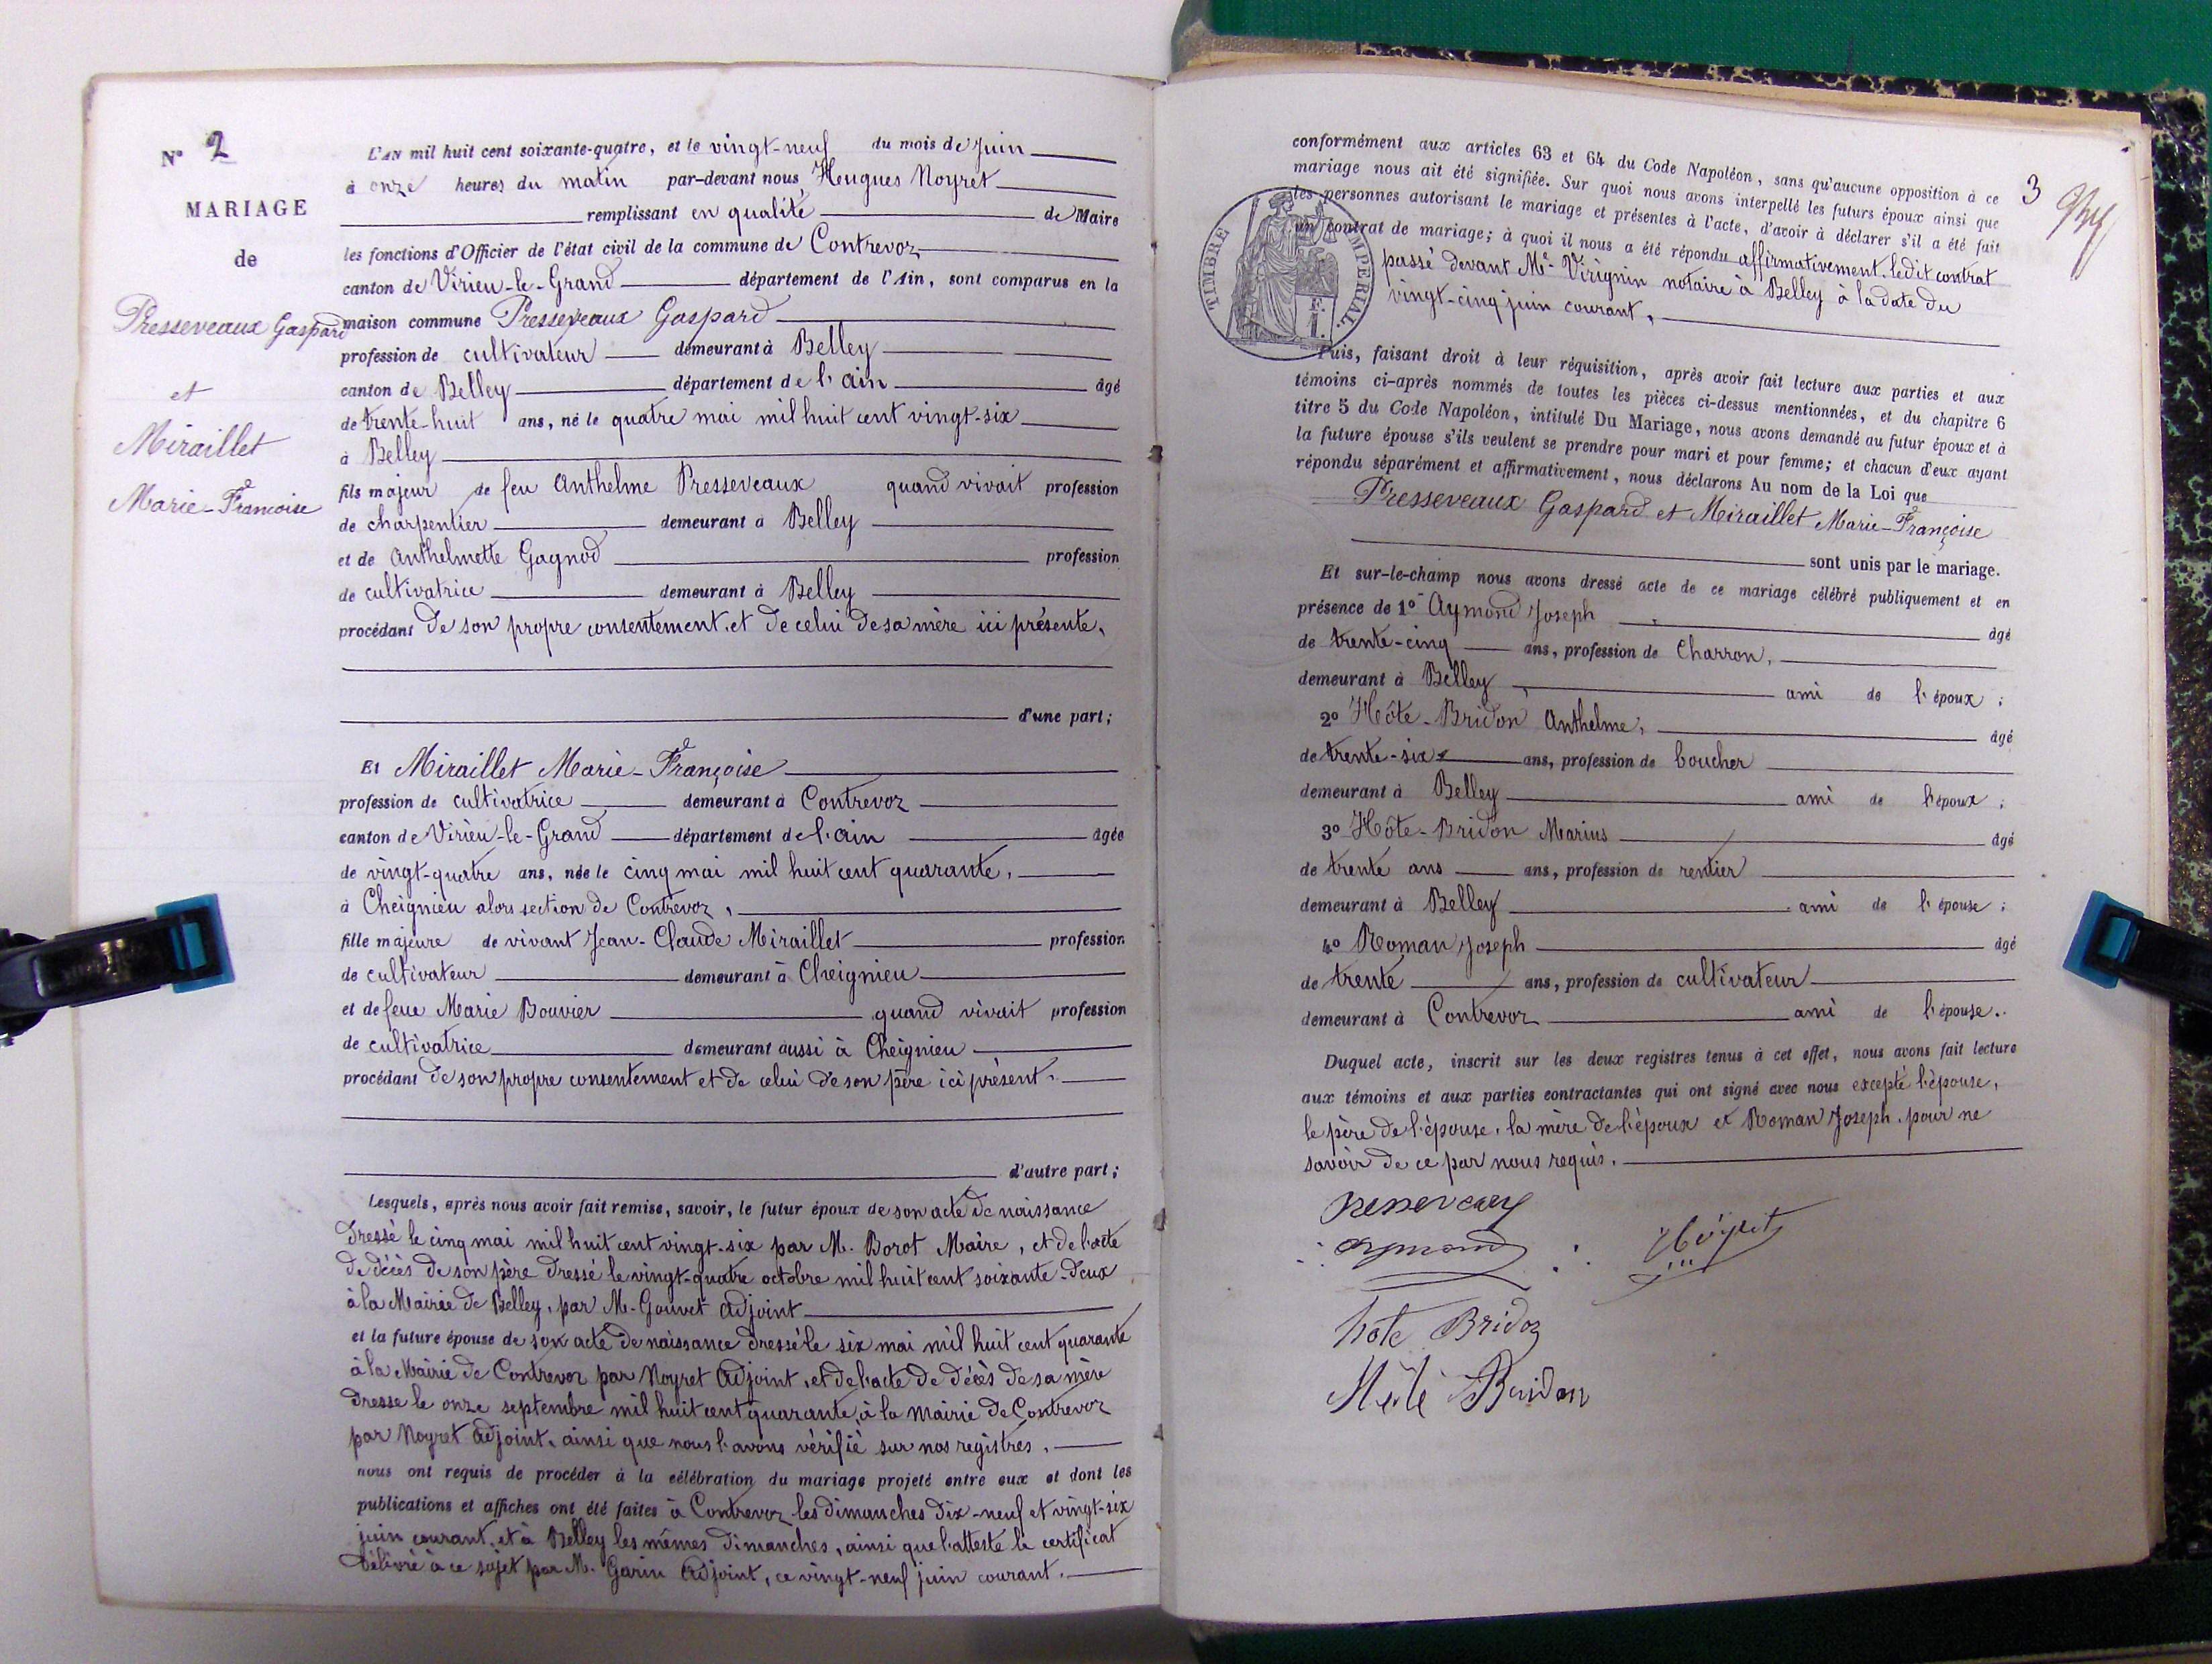 N° 2
MARIAGE
de
Presseveaux Gaspard
et
Miraillet
Marie-Francoise
L'AN mil huit cent soixante-quatre, et le vingt-neuf du mois de Juin
à onze heures du matin par-devant nous, Hugues Noyret
remplissant en qualité de Maire
les fonctions d'Officier de l'état civil de la commune de Contrevoz
canton de Virieu-le-Grand département de l'Ain, sont comparus en la
maison commune Presseveaux Gaspard
profession de cultivateur demeurant à Belley
canton de Belley département de l'ain âgé
de trente-huit ans, né le quatre mai mil huit cent vingt-six
à Belley
fils majeur de feu Anthelme Presseveaux quand vivait profession
de charpentier demeurant à Belley
et de Anthelmette Gagnod profession
de cultivatrice demeurant à Belley
procédant de son propre consentement, et de celui de sa mère ici présente,
d'une part;
Et Miraillet Marie-Françoise
profession de cultivatrice demeurant à Contrevoz
canton de Virieu-le-Grand département de l'ain âgée
de vingt-quatre ans, née le cinq mai mil huit cent quarante,
à Cheignieu alors section de Contrevoz,
fille majeure de vivant Jean-Claude Miraillet profession
de cultivateur demeurant à Cheignieu
et de feue Marie Bouvier quand vivait profession
de cultivatrice demeurant aussi à Cheignieu
procédant de son propre consentement et de celui de son père ici présent.
d'autre part;
Lesquels, après nous avoir fait remise, savoir, le futur époux de son acte de naissance
dressé le cinq mai mil huit cent vingt-six par M. Borot Maire, et de l'acte
de décès de son père dressé le vingt-quatre octobre mil huit cent soixante-deux
à la Mairie de Belley, par M. Gouvet adjoint
et la future épouse de son acte de naissance dressé le six mai mil huit cent quarante
à la Mairie de Contrevoz par Noyret adjoint, et de l'acte de décès de sa mère
dresse le onze septembre mil huit cent quarante, à la Mairie de Contrevoz
par Noyret adjoint, ainsi que nous l'avons vérifié sur nos registres.
nous ont requis de procéder à la célébration du mariage projeté entre eux et dont les
publications et affiches ont été faites à Contrevoz les dimanches dix-neuf et vingt-six
juin courant, et à Belley les mêmes dimanches, ainsi que l'atteste le certificat
délivré à ce sujet par M. Garin adjoint, ce vingt-neuf juin courant.
3
conformément aux articles 63 et 64 du Code Napoléon, sans qu'aucune opposition à ce
mariage nous ait été signifiée. Sur quoi nous avons interpellé les futurs époux ainsi que
les personnes autorisant le mariage et présentes à l'acte, d'avoir à déclarer s'il a été fait
un contrat de mariage; à quoi il nous a été répondu affirmativement. ledit contrat
passé devant Me Virignin notaire à Belley à la date du
vingt-cinq juin courant,
TIMBRE IMPERIAL.
F.
1.
Puis, faisant droit à leur réquisition, après avoir fait lecture aux parties et aux
témoins ci-après nommés de toutes les pièces ci-dessus mentionnées, et du chapitre 6
titre 5 du Code Napoléon, intitulé Du Mariage, nous avons demandé au futur époux et à
la future épouse s'ils veulent se prendre pour mari et pour femme; et chacun d'eux ayant
répondu séparément et affirmativement, nous déclarons Au nom de la Loi que
Presseveaux Gaspard et Miraillet Marie-Françoise
sont unis par le mariage.
Et sur-le-champ nous avons dressé acte de ce mariage célébré publiquement et en
présence de 1° Aymond Joseph âgé
de trente-cinq ans, profession de Charron,
demeurant à Belley, ami de l'époux;
2° Hôte-Bridon Anthelme, âgé
de trente-six ans, profession de boucher
demeurant à Belley ami de l'époux;
3° Hôte-Bridon Marius âgé
de trente ans ans, profession de rentier
demeurant à Belley ami de l'épouse;
4° Roman Joseph âgé
de trente ans, profession de cultivateur
demeurant à Contrevoz ami de l'épouse.
Duquel acte, inscrit sur les deux registres tenus à cet effet, nous avons fait lecture
aux témoins et aux parties contractantes qui ont signé avec nous excepté l'épouse,
le père de l'épouse, la mère de l'époux et Roman Joseph, pour ne
savoir de ce par nous requis.
aymond
hote Bridon
Bridon